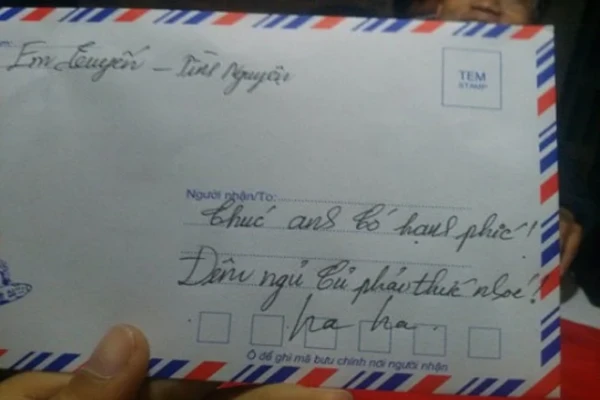 Em – Tình Nguyện
TEM
STAMP
Người nhận/To:
Chúc anh hạnh phúc!
Đêm ngủ phải thức
ha ha
Ô để ghi mã bưu chính nơi người nhận